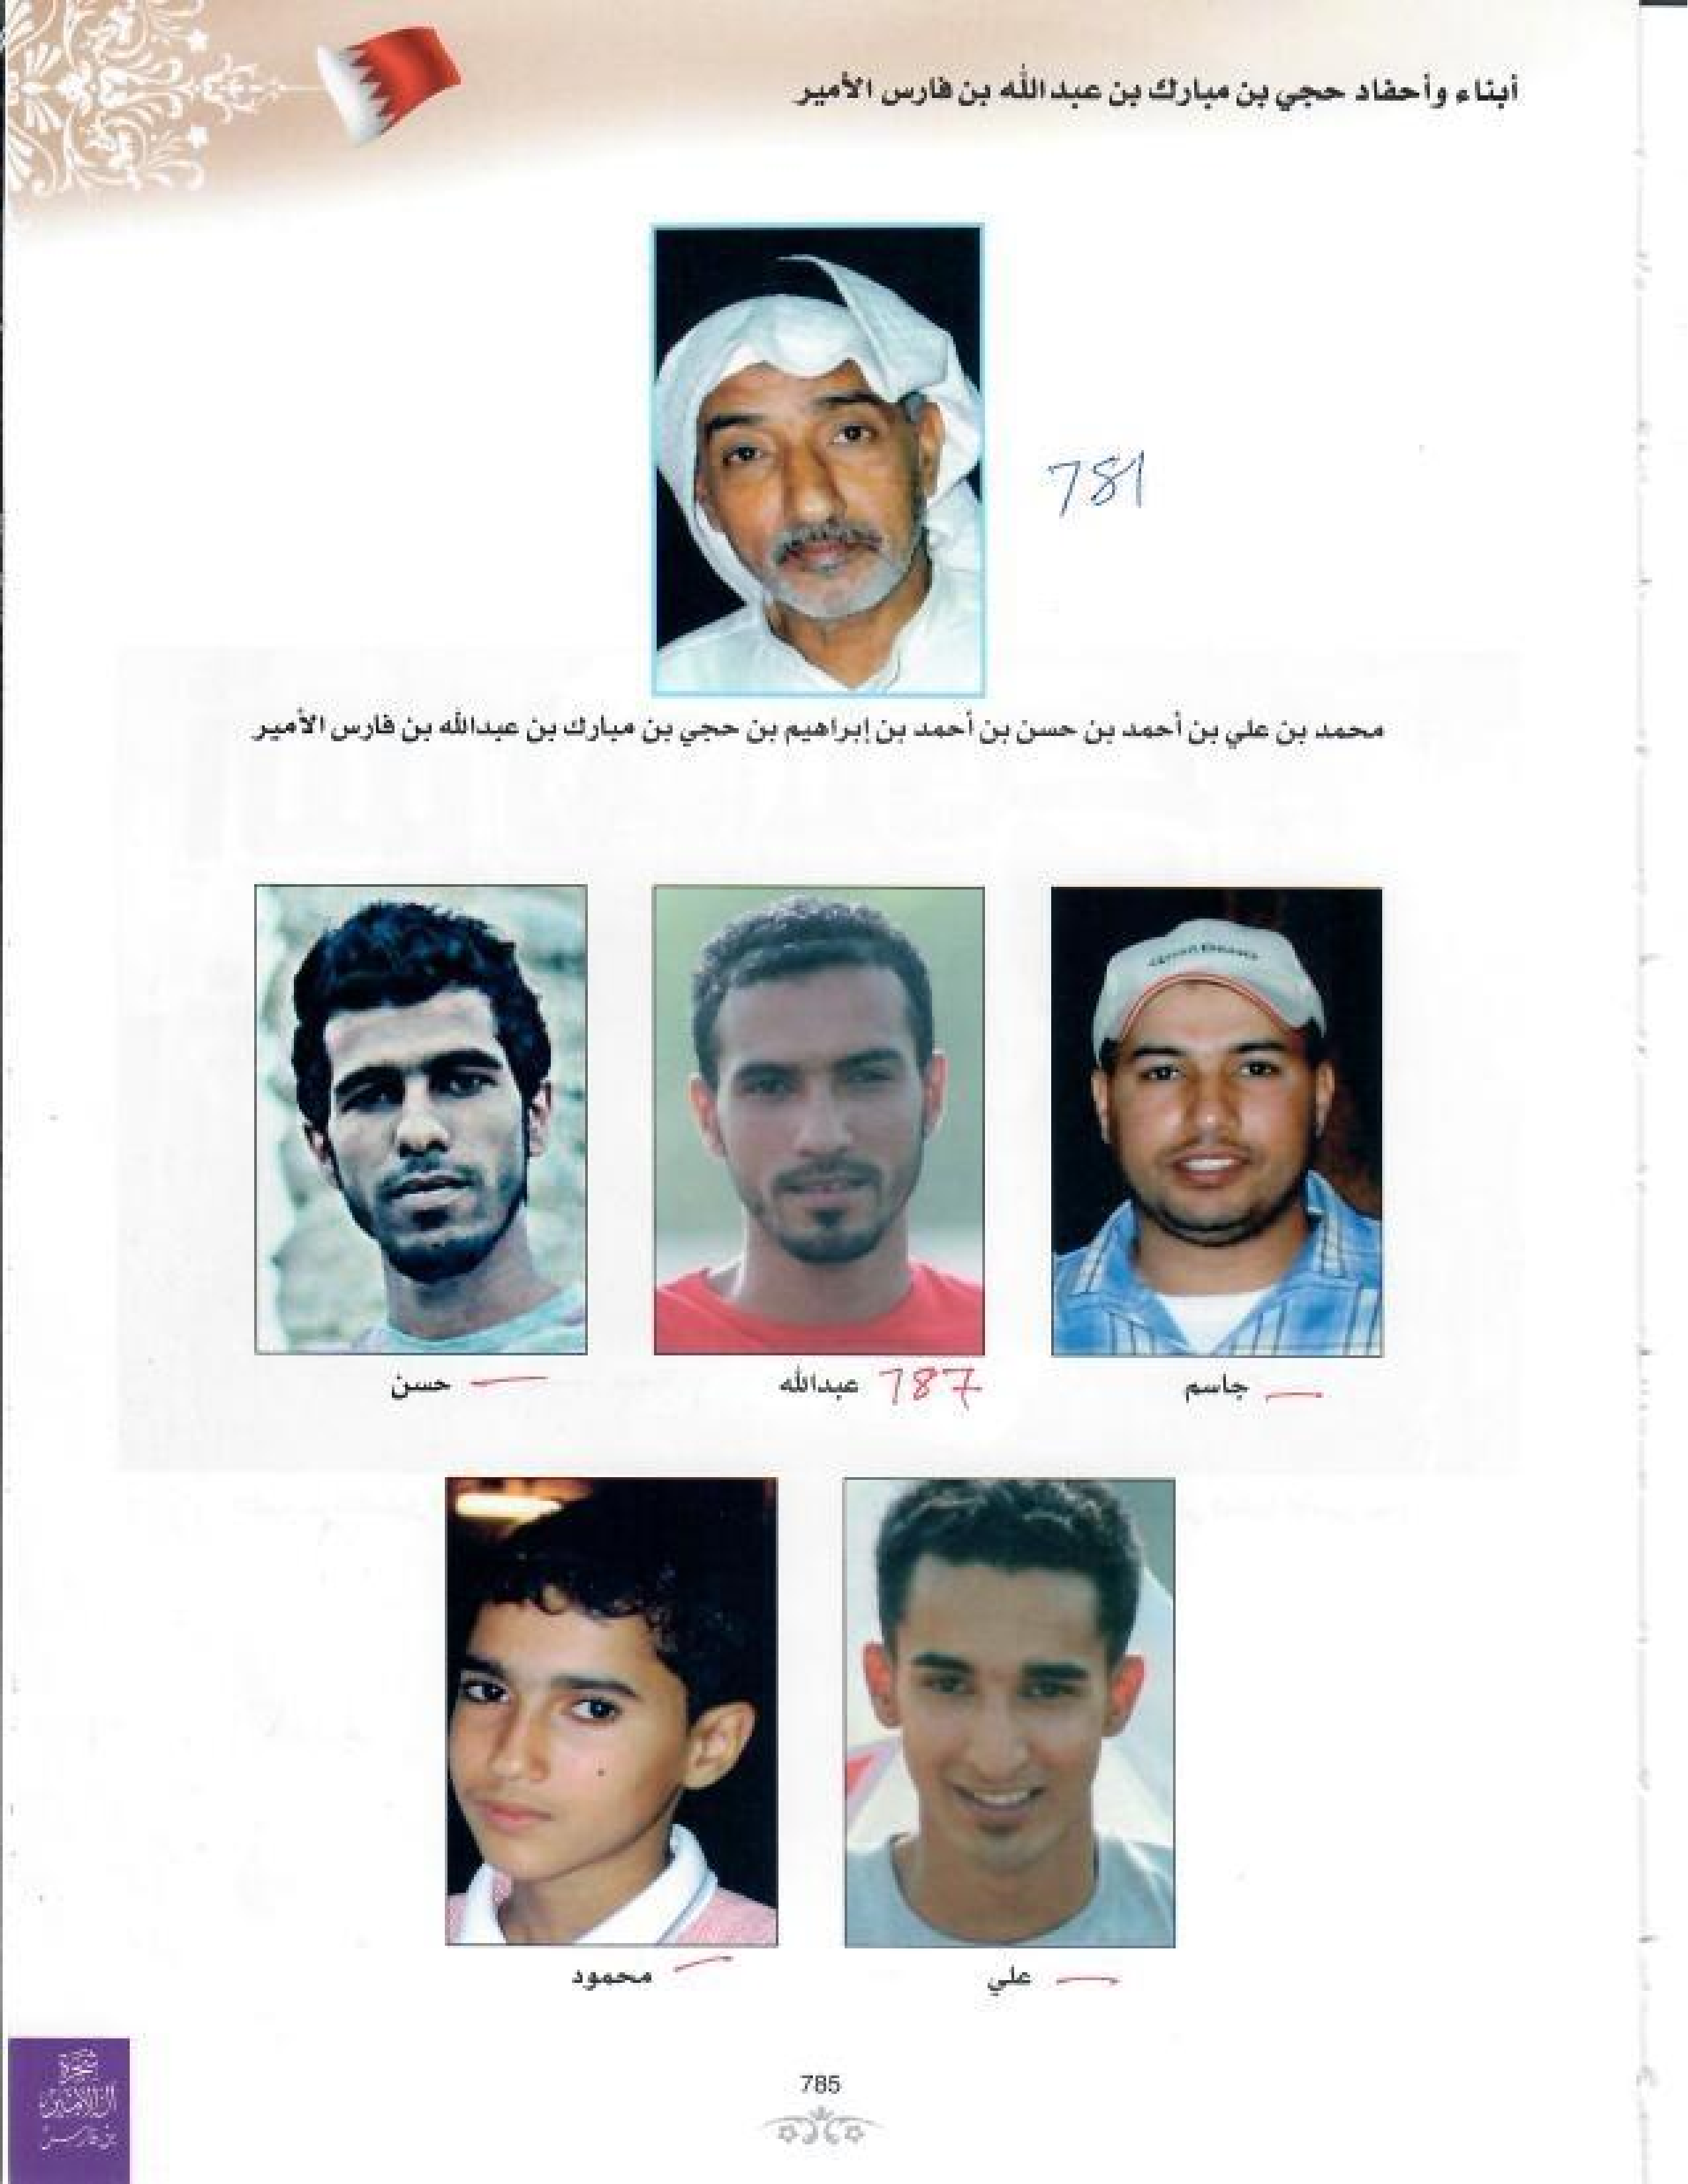 أبناء وأحفاد حجي بن مبارك بن عبدالله بن فارس الأمير
781
محمد بن علي بن أحمد بن حسن بن أحمد بن إبراهيم بن حجي بن مبارك بن عبدالله بن فارس الأمير
جاسم
787 عبدالله
حسن
علي
محمود
785
شجرة
بن فارس